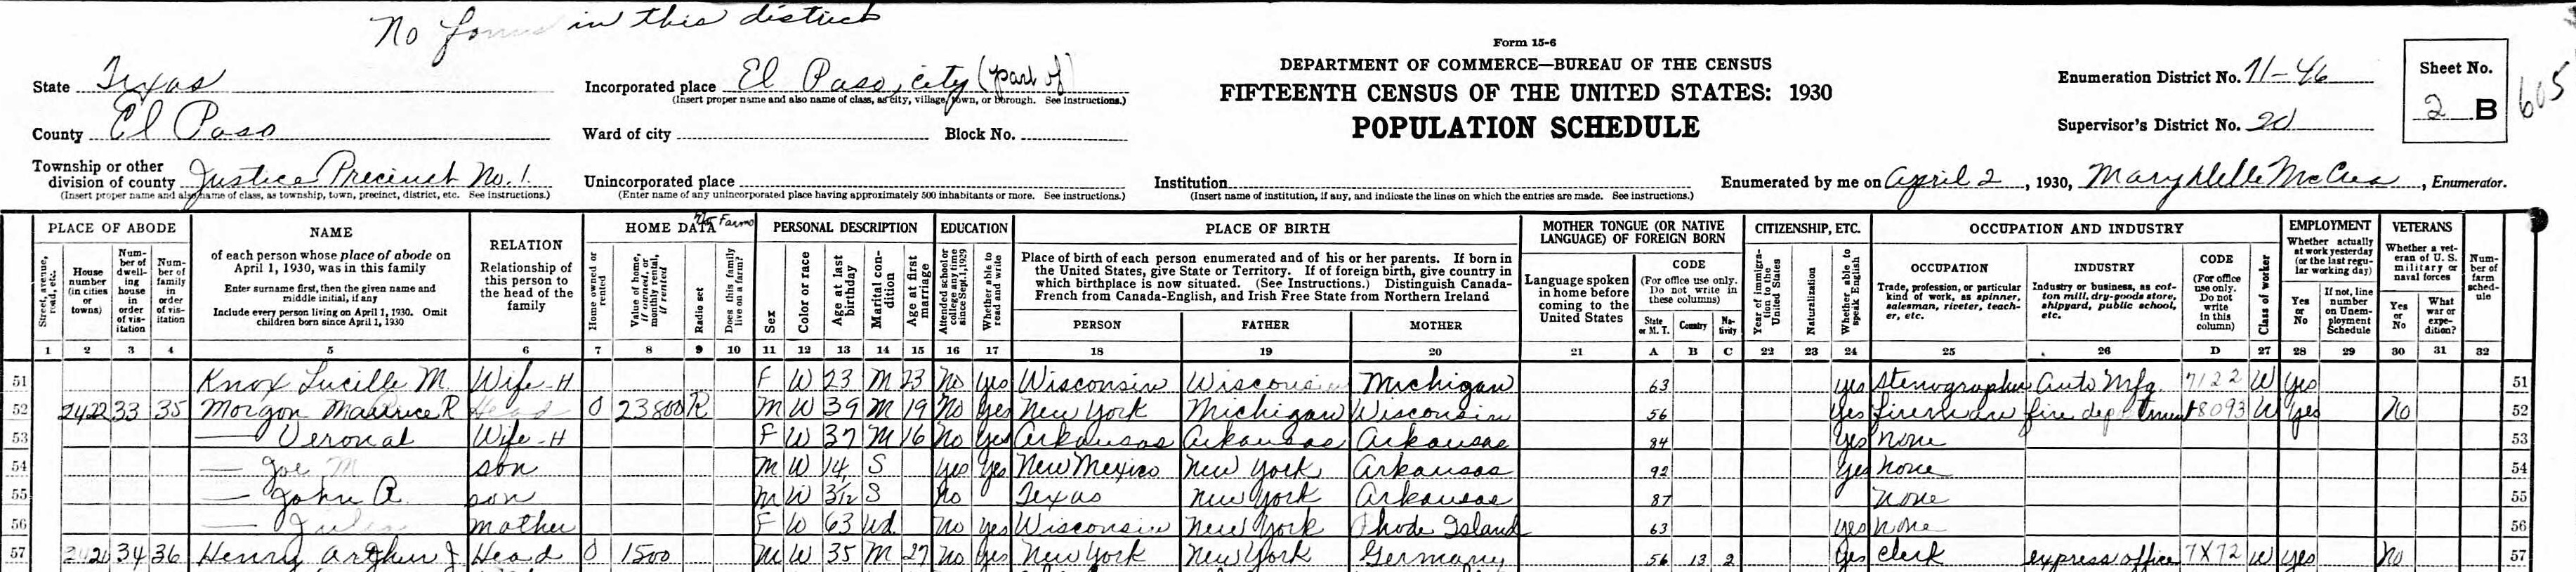 No in this district
Form 15-6
DEPARTMENT OF COMMERCE—BUREAU OF THE CENSUS
FIFTEENTH CENSUS OF THE UNITED STATES: 1930
POPULATION SCHEDULE
State Texas
Incorporated place El Paso, city (part of)
(Insert proper name and also name of class, as city, village, town, or borough. See instructions.)
Enumeration District No. 71-46
Sheet No.
2 B
605
County El Paso
Ward of city
Block No.
Supervisor's District No. 20
Township or other
division of county Justice Precinct No. 1
(Insert proper name and also name of class, as township, town, precinct, district, etc. See instructions.)
Unincorporated place
(Enter name of any unincorporated place having approximately 500 inhabitants or more. See instructions.)
Institution
(Insert name of institution, if any, and indicate the lines on which the entries are made. See instructions.)
Enumerated by me on April 2, 1930, McCrea, Enumerator.
PLACE OF ABODE
Street, avenue, road, etc.
House number (in cities or towns)
Number of dwelling house in order of visitation
Number of family in order of visitation
NAME
of each person whose place of abode on
April 1, 1930, was in this family
Enter surname first, then the given name and
middle initial, if any
Include every person living on April 1, 1930. Omit
children born since April 1, 1930
RELATION
Relationship of
this person to
the head of the
family
HOME DATA
No Farms
Home owned or rented
Value of home, if owned, or monthly rental, if rented
Radio set
Does this family live on a farm?
PERSONAL DESCRIPTION
Sex
Color or race
Age at last birthday
Marital condition
Age at first marriage
EDUCATION
Attended school or college any time since Sept. 1, 1929
Whether able to read and write
PLACE OF BIRTH
Place of birth of each person enumerated and of his or her parents. If born in
the United States, give State or Territory. If of foreign birth, give country in
which birthplace is now situated. (See Instructions.) Distinguish Canada-
French from Canada-English, and Irish Free State from Northern Ireland
PERSON
FATHER
MOTHER
MOTHER TONGUE (OR NATIVE
LANGUAGE) OF FOREIGN BORN
Language spoken
in home before
coming to the
United States
CODE
(For office use only.
Do not write in
these columns)
State or M. T.
Country
Nativity
CITIZENSHIP, ETC.
Year of immigration to the United States
Naturalization
Whether able to speak English
OCCUPATION AND INDUSTRY
OCCUPATION
Trade, profession, or particular
kind of work, as spinner,
salesman, riveter, teacher, etc.
INDUSTRY
Industry or business, as cotton mill, dry-goods store,
shipyard, public school,
etc.
CODE
(For office
use only.
Do not
write
in this
column)
Class of worker
EMPLOYMENT
Whether actually
at work yesterday
(or the last regular working day)
Yes or No
If not, line number on Unemployment Schedule
VETERANS
Whether a veteran of U. S.
military or
naval forces
Yes or No
What war or expedition?
Number of farm schedule
1 2 3 4 5 6 7 8 9 10 11 12 13 14 15 16 17 18 19 20 21 A B C 22 23 24 25 26 D 27 28 29 30 31 32
51 Knox Lucille M. Wife-H F W 23 M 23 No Yes Wisconsin Wisconsin Michigan 63 yes stenographer Auto Mfg. 7122 W Yes 51
52 2422 33 35 Morgon Maurice R Head O 23800 R M W 39 M 19 No Yes New York Michigan Wisconsin 56 Yes fireman fire department 8093 W yes No 52
53 — Veronal Wife-H F W 37 M 16 No Yes Arkansas Arkansas Arkansas 84 Yes none 53
54 — Joe M son M W 14 S Yes Yes New Mexico New York Arkansas 92 Yes none 54
55 — John A. son M W 3/12 S No Texas New York Arkansas 87 none 55
56 — mother F W 63 Wd. No yes Wisconsin New York Rhode Island 63 yes none 56
57 2420 34 36 Henry Arthur J Head O 1500 M W 35 M 27 No Yes New York New York Germany 56 13 2 Yes clerk express office 7X72 W yes No 57